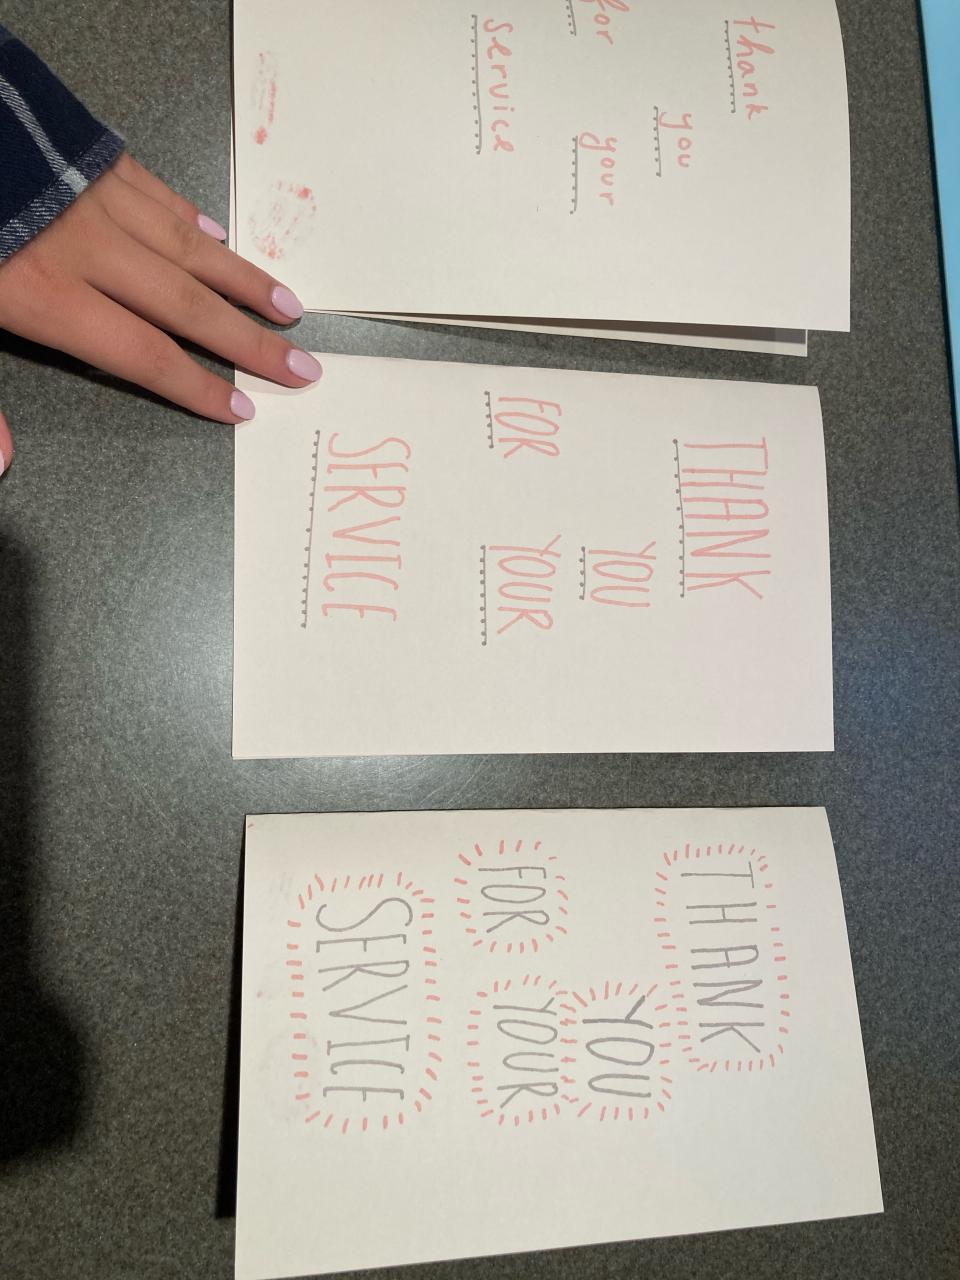 thank
you
for your
service
THANK
YOU
FOR YOUR
SERVICE
THANK
YOU
FOR YOUR
SERVICE